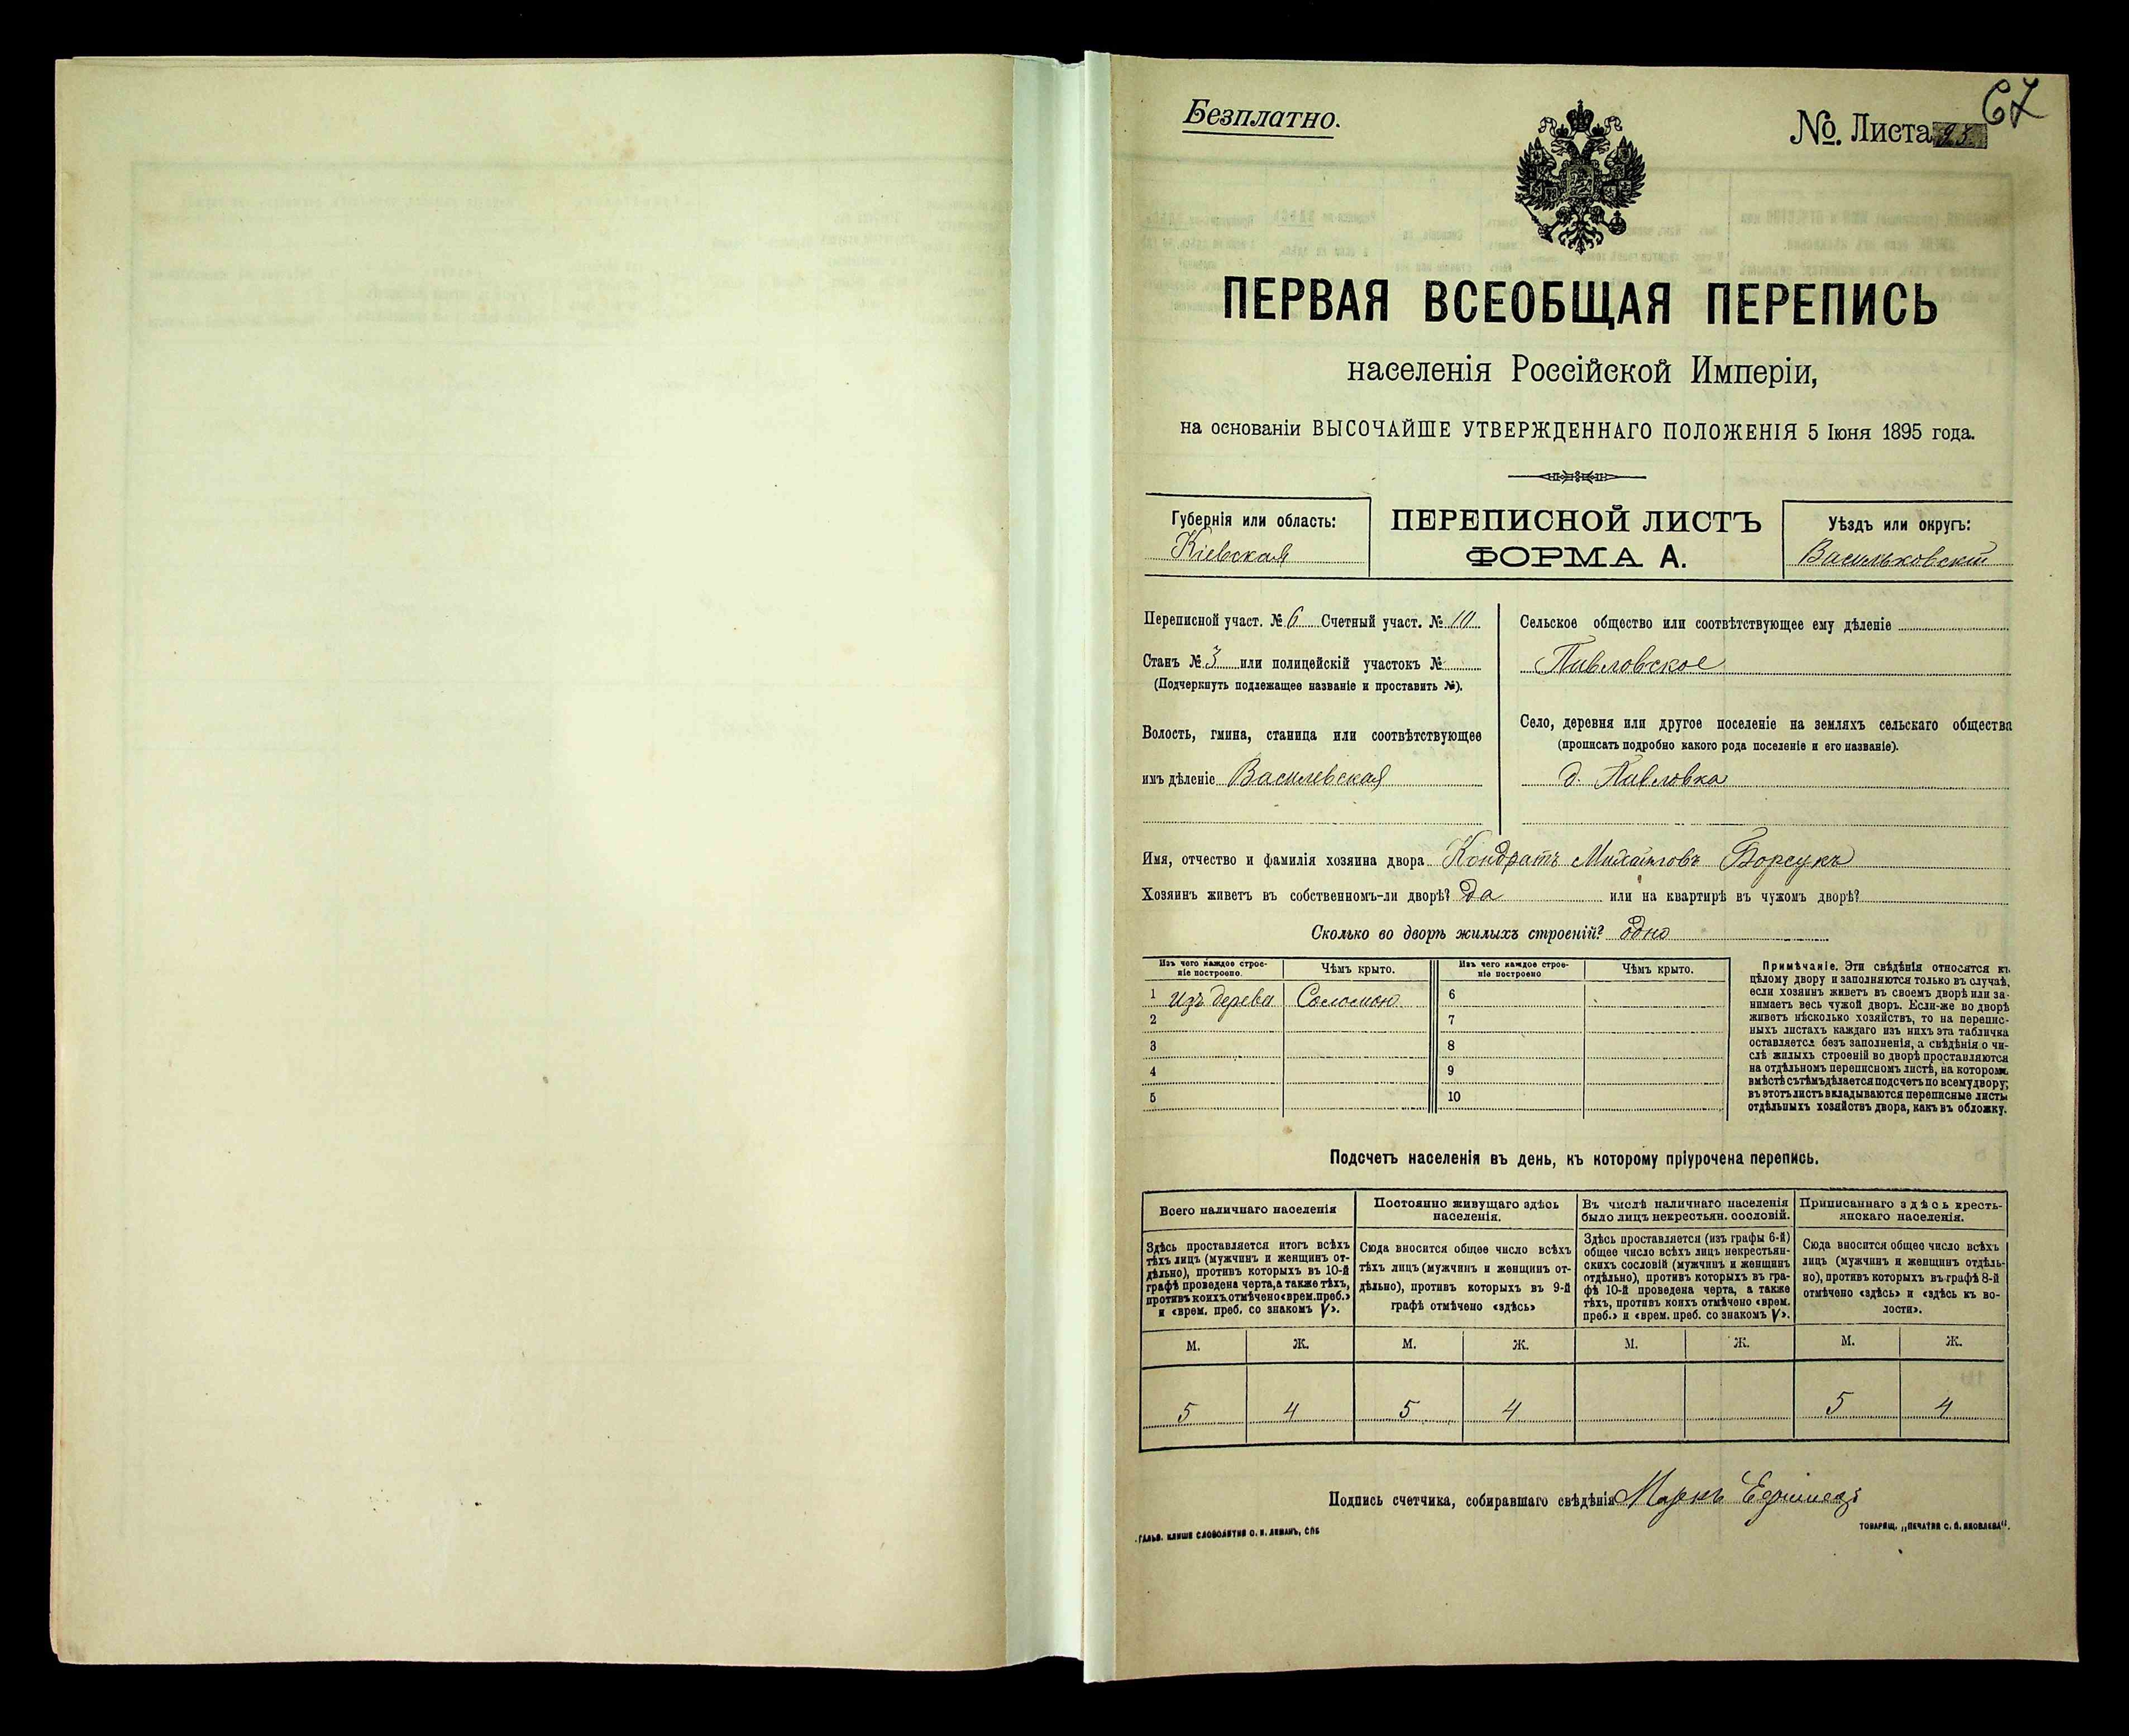 Безплатно.
№ Листа 95.
67
ПЕРВАЯ ВСЕОБЩАЯ ПЕРЕПИСЬ
населенія Россійской Имперіи,
на основаніи ВЫСОЧАЙШЕ УТВЕРЖДЕННАГО ПОЛОЖЕНІЯ 5 Іюня 1895 года.
Губернія или область:
Кіевская
ПЕРЕПИСНОЙ ЛИСТЪ
ФОРМА А.
Уѣздъ или округъ:
Васильковскій
Переписной участ. № 6 Счетный участ. № 10
Станъ № 3 или полицейскій участокъ №
(Подчеркнуть подлежащее названіе и проставить №).
Волость, гмина, станица или соотвѣтствующее
имъ дѣленіе Василевская
Сельское общество или соотвѣтствующее ему дѣленіе
Павловское
Село, деревня или другое поселеніе на земляхъ сельскаго общества
(прописать подробно какого рода поселеніе и его названіе).
д. Павловка
Имя, отчество и фамилія хозяина двора Кондратъ Михайловъ Борсукъ
Хозяинъ живетъ въ собственномъ-ли дворѣ? Да или на квартирѣ въ чужомъ дворѣ?
Сколько во дворѣ жилыхъ строеній? одно
Изъ чего каждое строе-
ніе построено.
Чѣмъ крыто.
Изъ чего каждое строе-
ніе построено
Чѣмъ крыто.
1 Изъ дерева Соломою 6
2 7
3 8
4 9
5 10
Примѣчаніе. Эти свѣдѣнія относятся къ
цѣлому двору и заполняются только въ случаѣ,
если хозяинъ живетъ въ своемъ дворѣ или за-
нимаетъ весь чужой дворъ. Если-же во дворѣ
живетъ нѣсколько хозяйствъ, то на перепис-
ныхъ листахъ каждаго изъ нихъ эта табличка
оставляется безъ заполненія, а свѣдѣнія о чи-
слѣ жилыхъ строеній во дворѣ проставляются
на отдѣльномъ переписномъ листѣ, на которомъ
вмѣстѣ съ тѣмъ дѣлается подсчетъ по всему двору;
въ этотъ листъ вкладываются переписные листы
отдѣльныхъ хозяйствъ двора, какъ въ обложку.
Подсчетъ населенія въ день, къ которому пріурочена перепись.
Всего наличнаго населенія
Здѣсь проставляется итогъ всѣхъ
тѣхъ лицъ (мужчинъ и женщинъ от-
дѣльно), противъ которыхъ въ 10-й
графѣ проведена черта, а также тѣхъ,
противъ коихъ отмѣчено «врем. преб.»
и «врем. преб. со знакомъ V».
Постоянно живущаго здѣсь
населенія.
Сюда вносится общее число всѣхъ
тѣхъ лицъ (мужчинъ и женщинъ от-
дѣльно), противъ которыхъ въ 9-й
графѣ отмѣчено «здѣсь»
Въ числѣ наличнаго населенія
было лицъ некрестьян. сословій.
Здѣсь проставляется (изъ графы 6-й)
общее число всѣхъ лицъ некрестьян-
скихъ сословій (мужчинъ и женщинъ
отдѣльно), противъ которыхъ въ гра-
фѣ 10-й проведена черта, а также
тѣхъ, противъ коихъ отмѣчено «врем.
преб.» и «врем. преб. со знакомъ V».
Приписаннаго здѣсь кресть-
янскаго населенія.
Сюда вносится общее число всѣхъ
лицъ (мужчинъ и женщинъ отдѣль-
но), противъ которыхъ въ графѣ 8-й
отмѣчено «здѣсь» и «здѣсь къ во-
лости».
М. Ж. М. Ж. М. Ж. М. Ж.
5 4 5 4 5 4
Подпись счетчика, собиравшаго свѣдѣнія Маркъ
ГАЛЬВ. КЛИШЕ СЛОВОЛИТНИ О. И. ЛЕМАНЪ, СПБ
ТОВАРИЩ. „ПЕЧАТНЯ С. П. ЯКОВЛЕВА“.